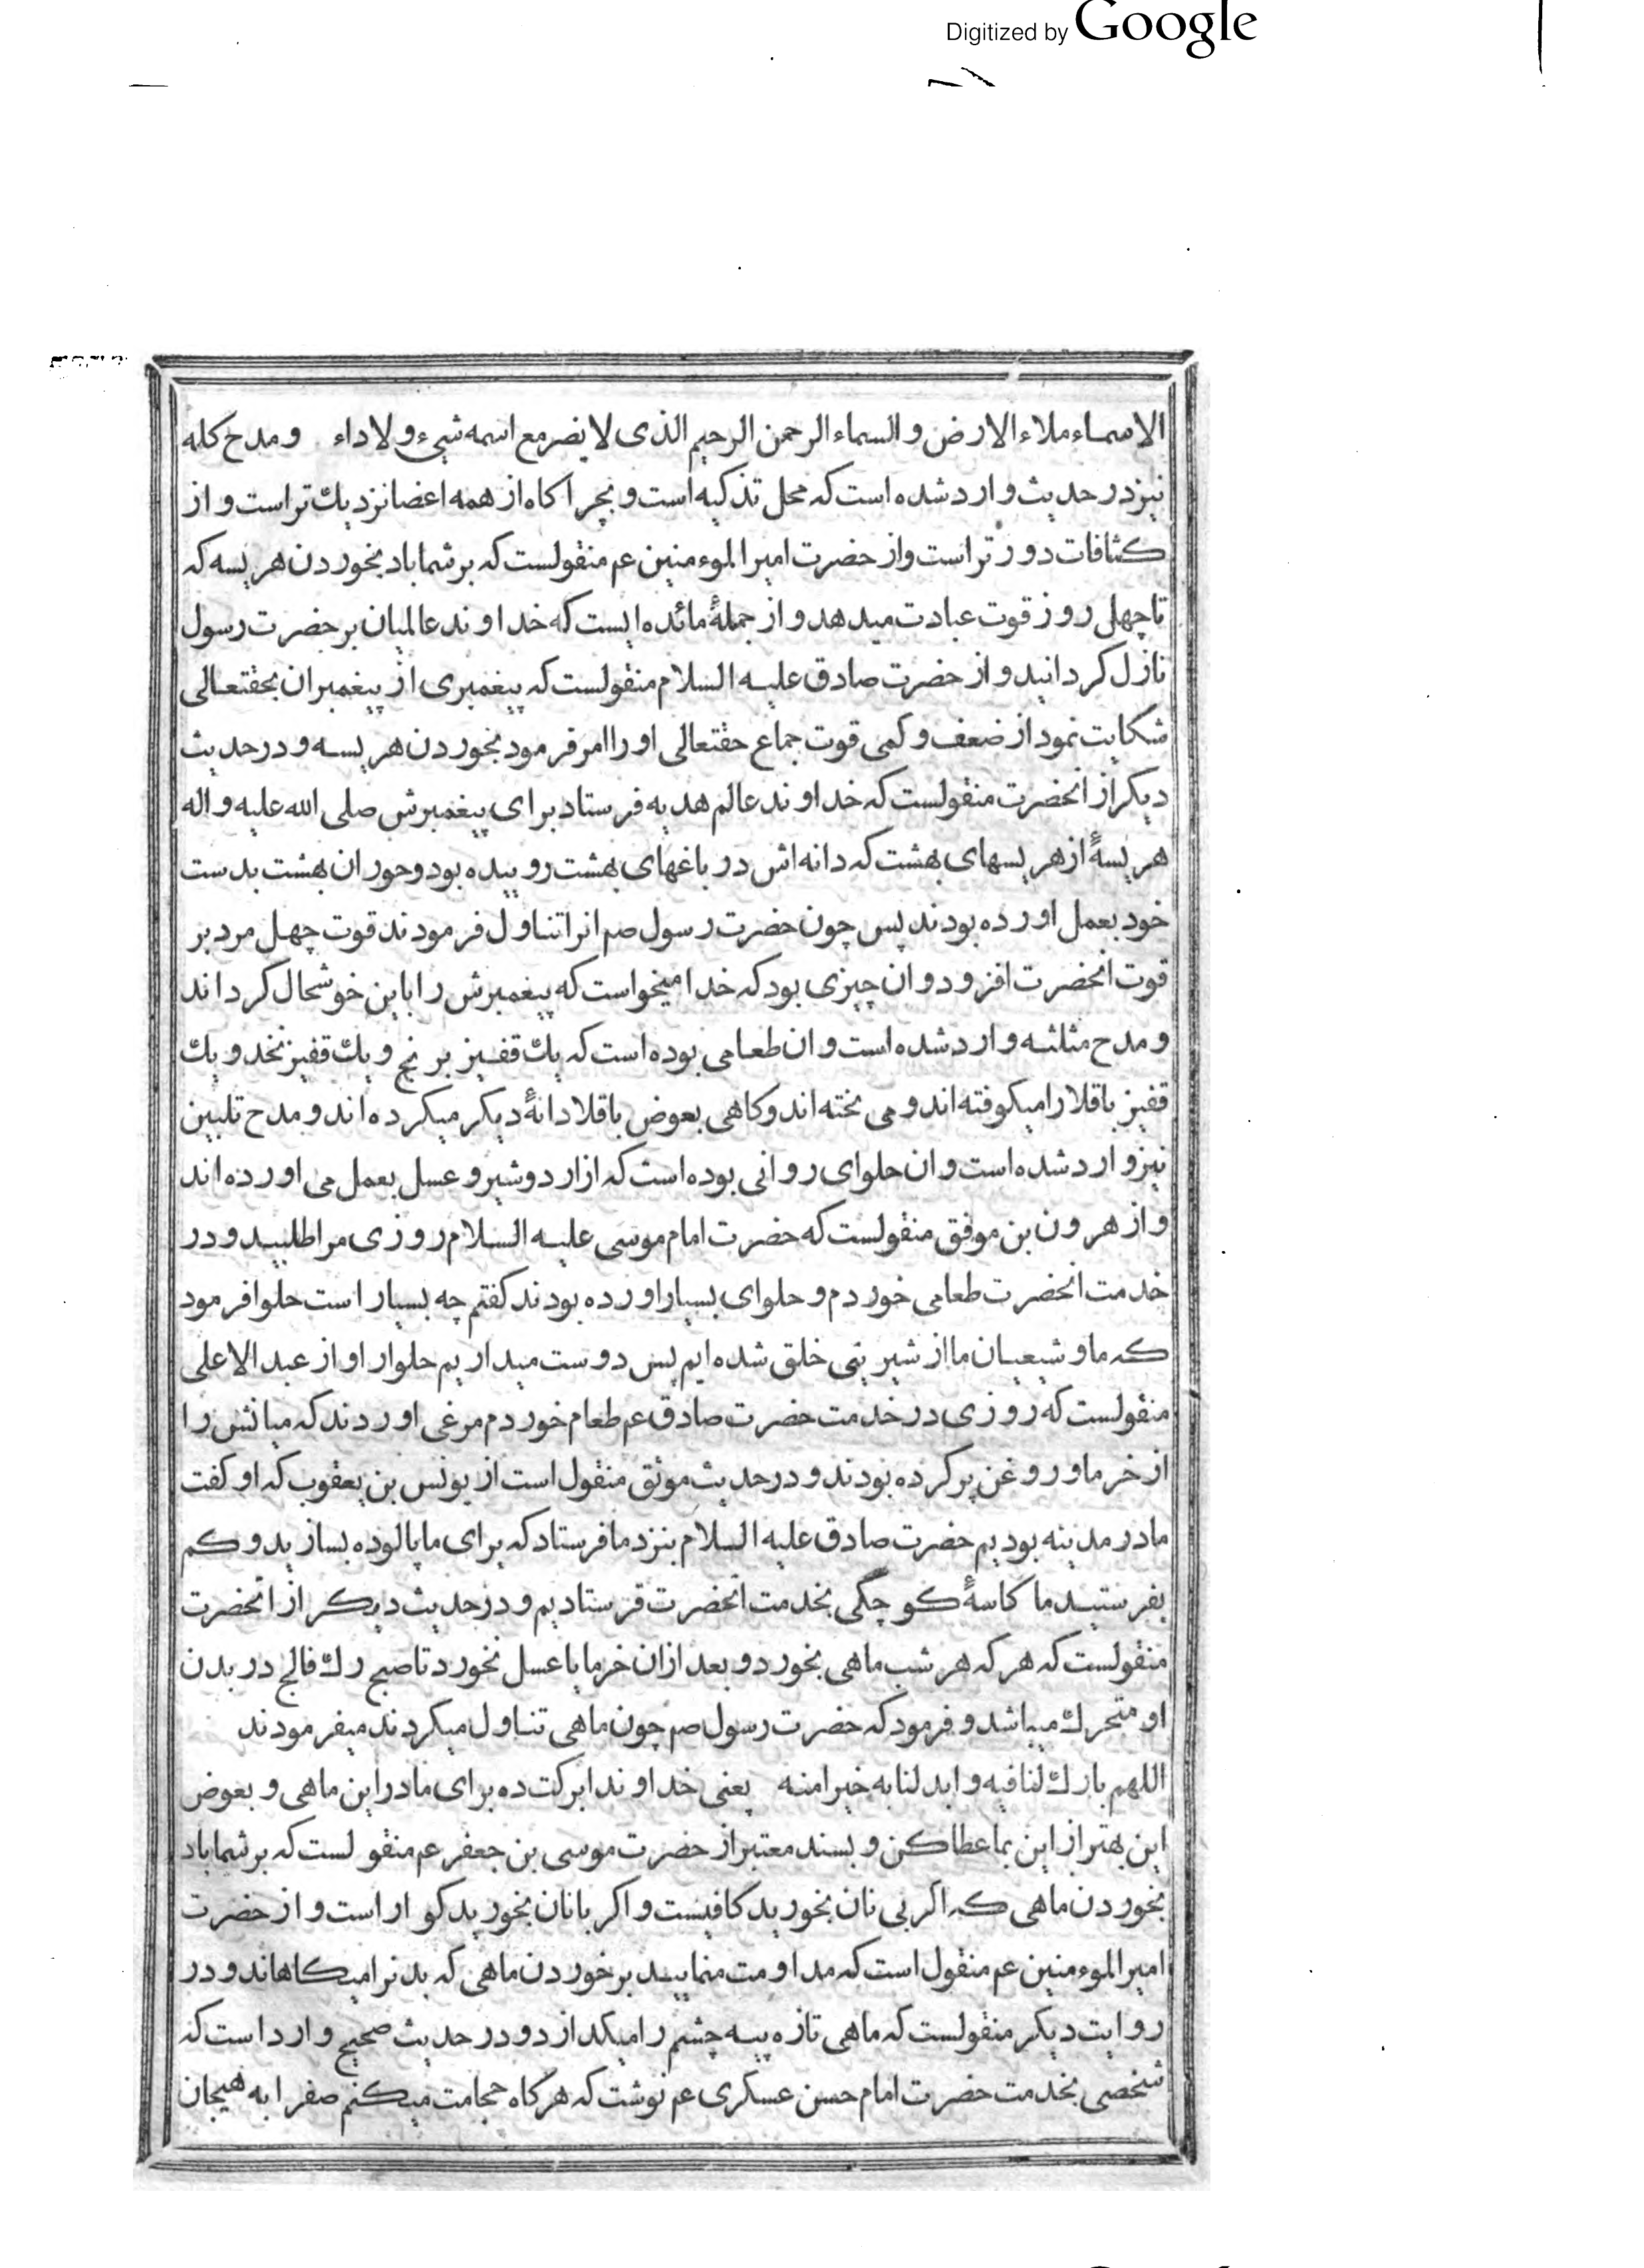 Digitized by Google
الاسماء ملاء الارض و السماء الرحمن الرحیم الذی لا یضر مع اسمه شیء و لا داء و مدح کله
نیز در حدیث وارد شده است که محل تذکیه است و بچراکاه از همه اعضا نزدیك تر است و از
کثافات دور تر است واز حضرت امیر الموءمنین عم منقولست که بر شما باد بخوردن هریسه که
تا چهل روز قوت عبادت میدهد و از جملهٔ مائده ایست که خداوند عالمیان بر حضرت رسول
نازل کردانید و از حضرت صادق علیه السلام منقولست که پیغمبری از پیغمبران بحقتعالی
شکایت نمود از ضعف و کمی قوت جماع حقتعالی او را امر فرمود بخوردن هریسه و در حدیث
دیکر از انحضرت منقولست که خداوند عالم هدیه فرستاد برای پیغمبرش صلی الله علیه و اله
هریسهٔ از هریسهای بهشت که دانه اش در باغهای بهشت روییده بود و حوران بهشت بدست
خود بعمل اورده بودند پس چون حضرت رسول صم انرا تناول فرمودند قوت چهل مرد بر
قوت انحضرت افزود و ان چیزی بود که خدا میخواست که پیغمبرش را باین خوشحال کرداند
و مدح مثلثه وارد شده است و ان طعامی بوده است که یك قفیز برنج و یك قفیز نخد و یك
قفیز باقلا را میکوفته اند و می پخته اند و کاهی بعوض باقلا دانهٔ دیکر میکرده اند و مدح تلبین
نیز وارد شده است و ان حلوای روانی بوده است که از ارد و شیر و عسل بعمل می اورده اند
و از هرون بن موفق منقولست که حضرت امام موسی علیه السلام روزی مرا طلبید و در
خدمت انحضرت طعامی خوردم و حلوای بسیار اورده بودند کفتم چه بسیار است حلوا فرمود
که ما و شیعیان ما از شیرینی خلق شده ایم پس دوست میداریم حلوا را و از عبد الاعلی
منقولست که روزی در خدمت حضرت صادق عم طعام خوردم مرغی اوردند که میانش را
از خرما و روغن پر کرده بودند و در حدیث موثق منقول است از یونس بن یعقوب که او کفت
ما در مدینه بودیم حضرت صادق علیه السلام بنزد ما فرستاد که برای ما پالوده بسازید و کم
بفرستید ما کاسهٔ کوچکی بخدمت انحضرت فرستادیم و در حدیث دیکر از انحضرت
منقولست که هر که هر شب ماهی بخورد و بعد ازان خرما یا عسل نخورد تا صبح رك فالج در بدن
او متحرك میباشد و فرمود که حضرت رسول صم چون ماهی تناول میکردند میفرمودند
اللهم بارك لنا فیه و ابدلنا به خیرا منه یعنی خداوندا برکت ده برای ما در این ماهی و بعوض
این بهتر از این بما عطا کن و بسند معتبر از حضرت موسی بن جعفر عم منقولست که بر شما باد
بخوردن ماهی که اکر بی نان بخورید کافیست و اکر با نان بخورید کوارا است و از حضرت
امیر الموءمنین عم منقول است که مداومت منمایید بر خوردن ماهی که بدنرا میکاهاند و در
روایت دیکر منقولست که ماهی تازه پیه چشم را میکدازد و در حدیث صحیح وارد است که
شخصی بخدمت حضرت امام حسن عسکری عم نوشت که هرکاه حجامت میکنم صفرا به هیجان